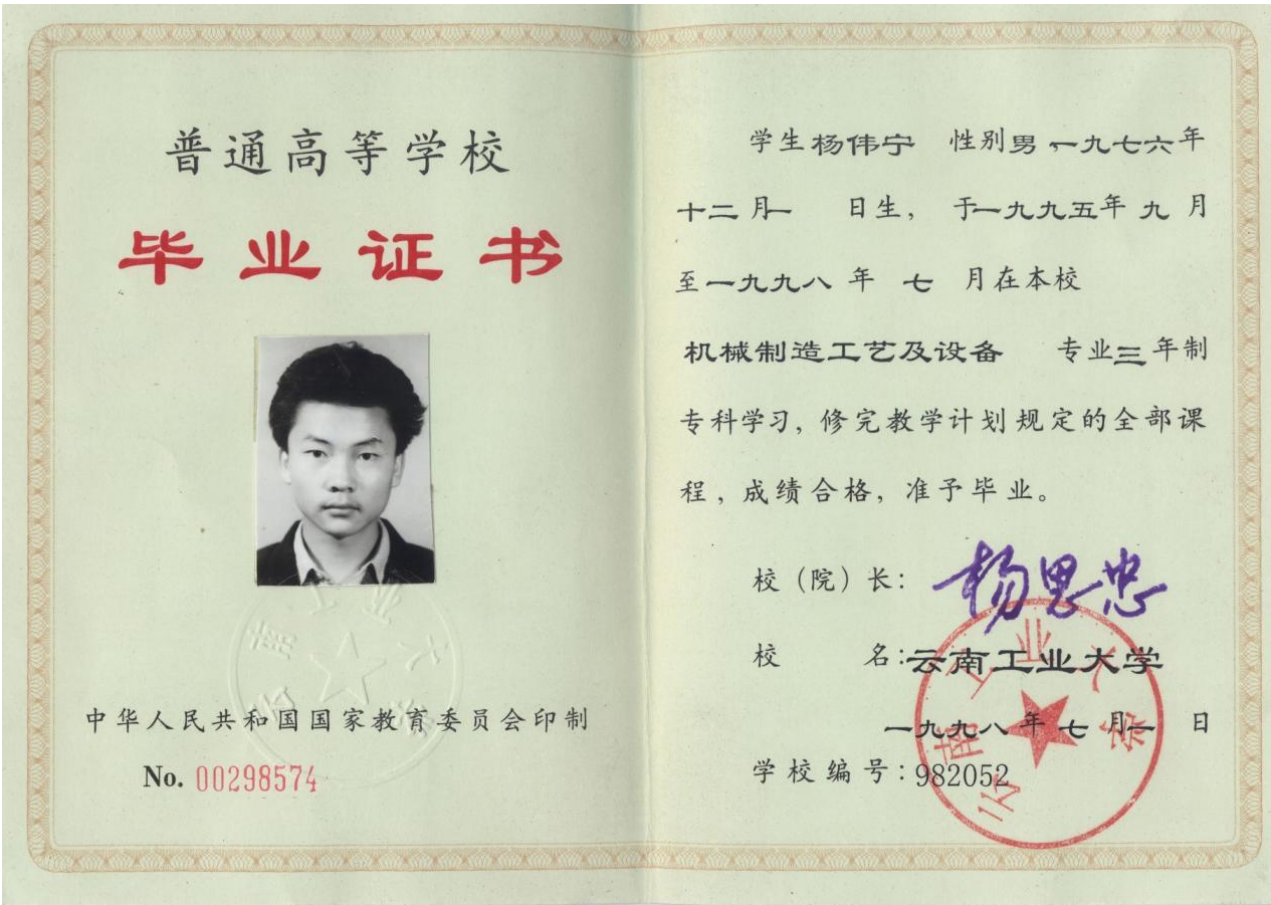 普通高等学校
毕业证书
中华人民共和国国家教育委员会印制
No. 00298574
学生杨伟宁 性别男,一九七六年
十二月一 日生, 于一九九五年九月
至一九九八年 七 月在本校
机械制造工艺及设备 专业三年制
专科学习, 修完教学计划规定的全部课
程, 成绩合格, 准予毕业。
校(院)长: 杨思忠
校 名: 云南工业大学
一九九八年七月一 日
学校编号: 982052
云南工业大学
云南工业大学